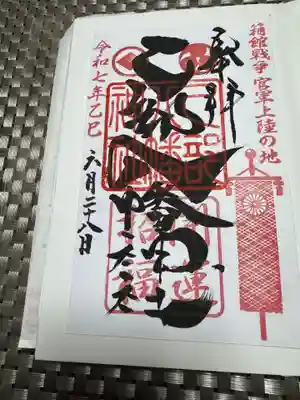 箱館戦争 官軍上陸の地
奉拝
乙部八幡神社
開運
招福
令和七年乙巳
六月二十八日